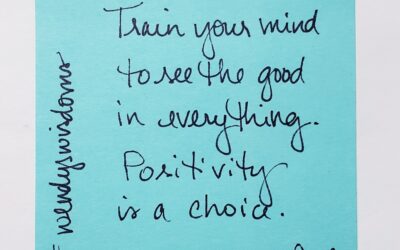 Train your mind
to see the good
in everything.
Positivity
is a choice.
#wendyswisdoms